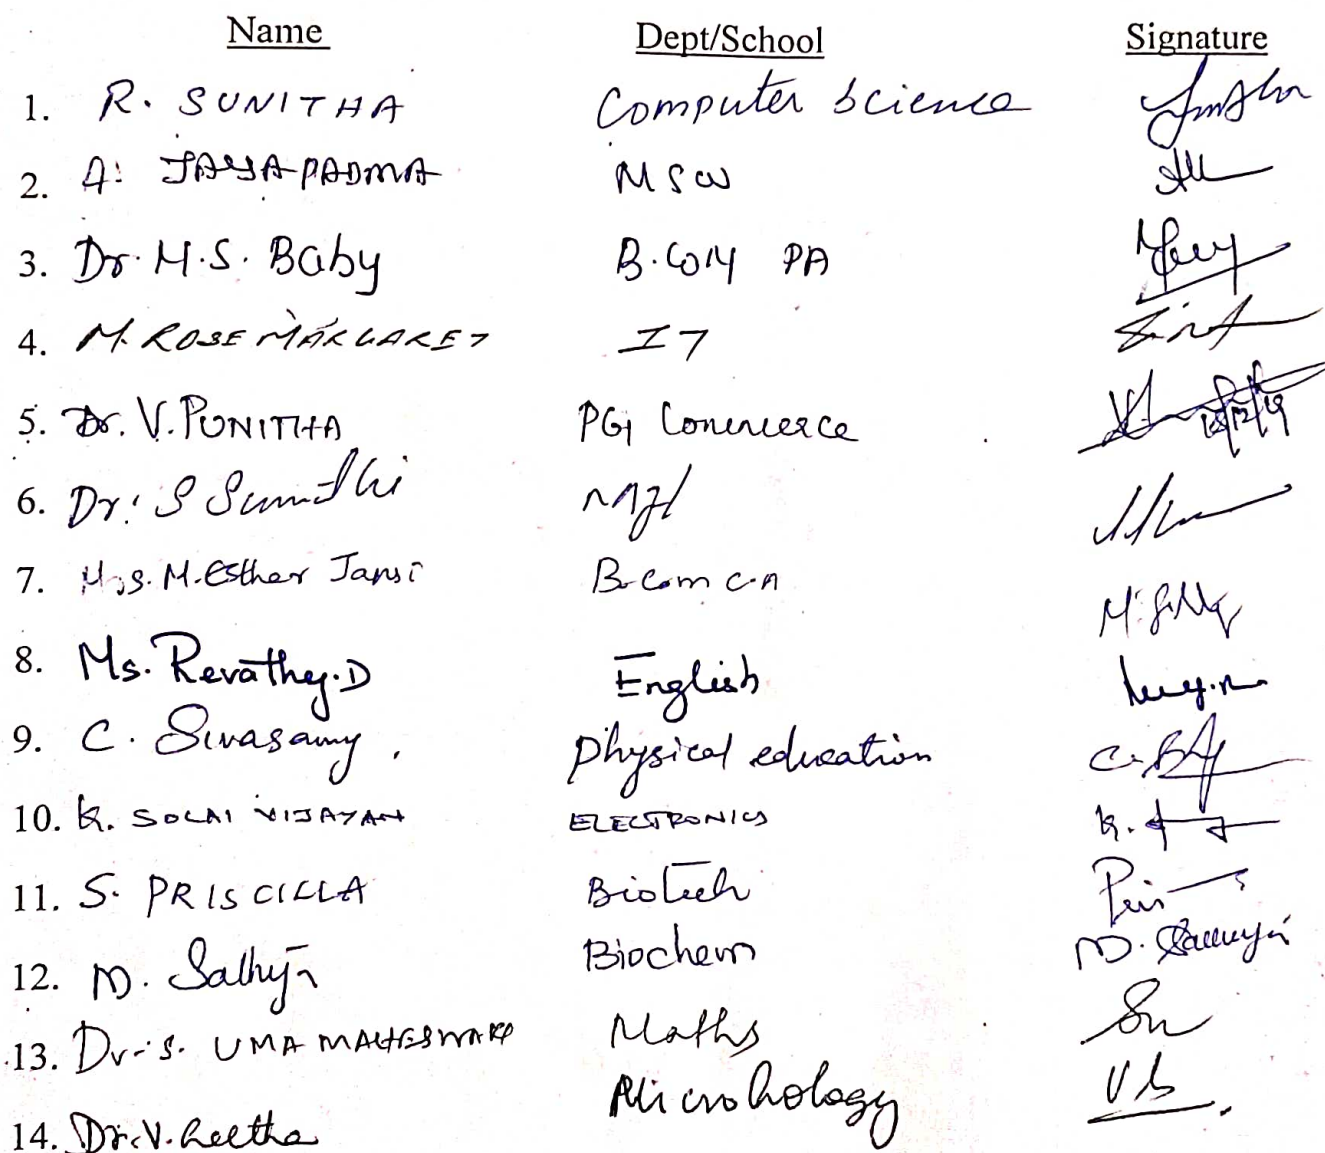 Name Dept/School Signature
1. R. SUNITHA Computer Science
2. A. JAYAPADMA MSW
3. Dr. M.S. Baby B.COM PA
4. M. ROSE MARGARET IT
5. Dr. V. PUNITHA PG Commerce 18/12/19
6. Dr. S
7. Mrs. M. Esther Jansi B.com C.A
8. Ms. Revathy. D English
9. C. Sivasamy. Physical education C.
10. K. SOLAI VIJAYAN ELECTRONICS K.
11. S. PRISCILLA Biotech
12. D. Sathya Biochem D.
13. Dr. S. UMA MAHESWARI Maths
14. Dr. V. Geetha Microbiology